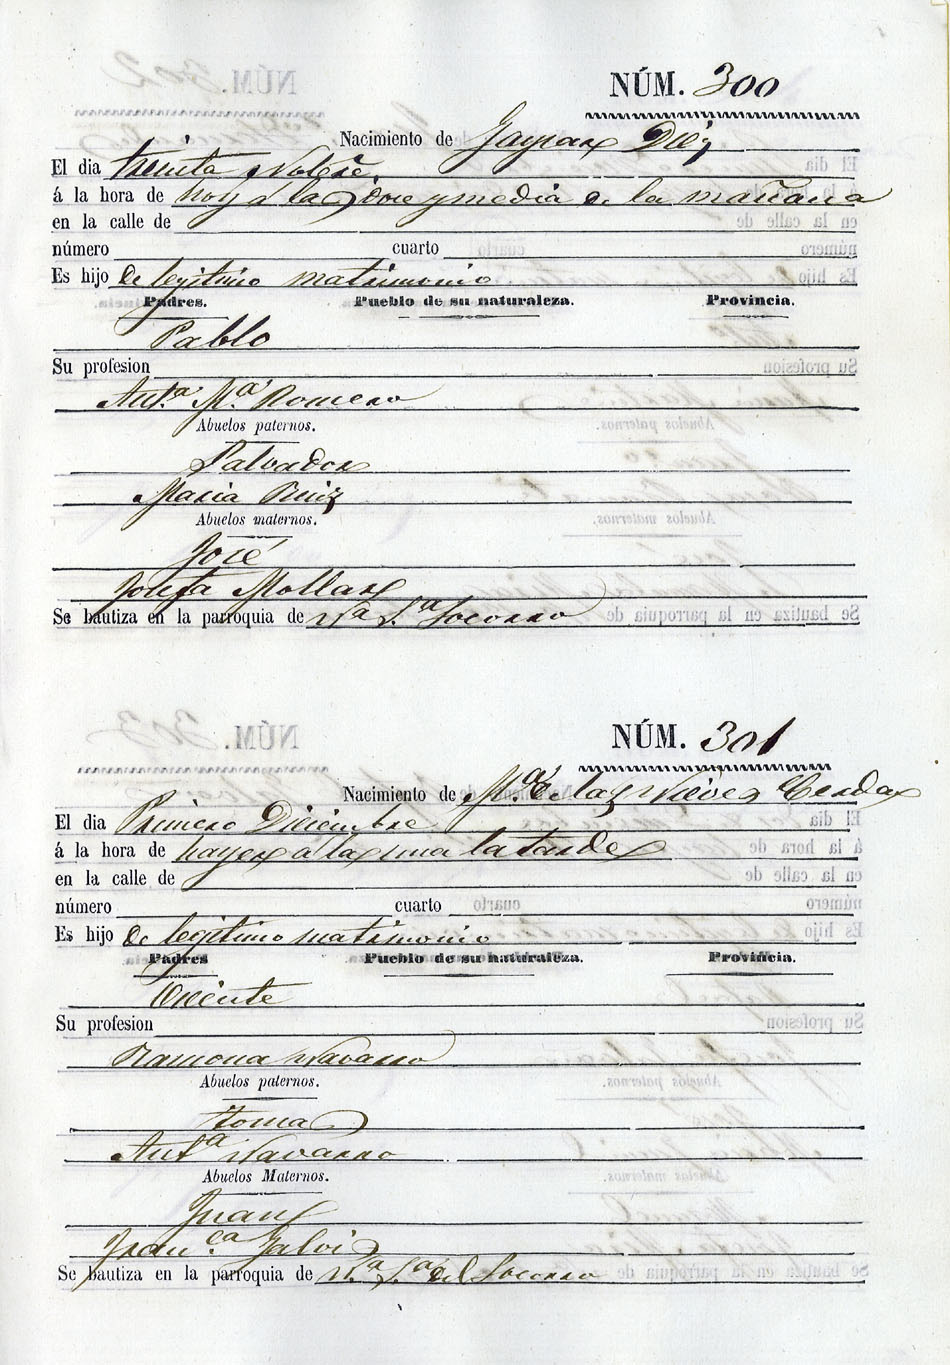 NÚM. 300
Nacimiento de Gaspar Diéz
El dia treinta Nobre.
á la hora de hoy á las doce y media de la mañana
en la calle de
número cuarto
Es hijo de legitimo matrimonio
Padres. Pueblo de su naturaleza. Provincia.
Pablo
Su profesion
Anta. Ma. Romero
Abuelos paternos.
Salvador
Maria Ruiz
Abuelos maternos.
José
Josefa Mollar
Se bautiza en la parroquia de Na. Sa. Socorro
NÚM. 301
Nacimiento de Ma. de las Nieves Cerda
El dia Primero Diciembre
á la hora de hayer a las una la tarde
en la calle de
número cuarto
Es hijo de legitimo matrimonio
Padres Pueblo de su naturaleza. Provincia.
Vicente
Su profesion
Ramona Navarro
Abuelos paternos.
Tomas
Anta. Navarro
Abuelos Maternos.
Juan
Franca. Galvis
Se bautiza en la parroquia de Na. Sa. del Socorro